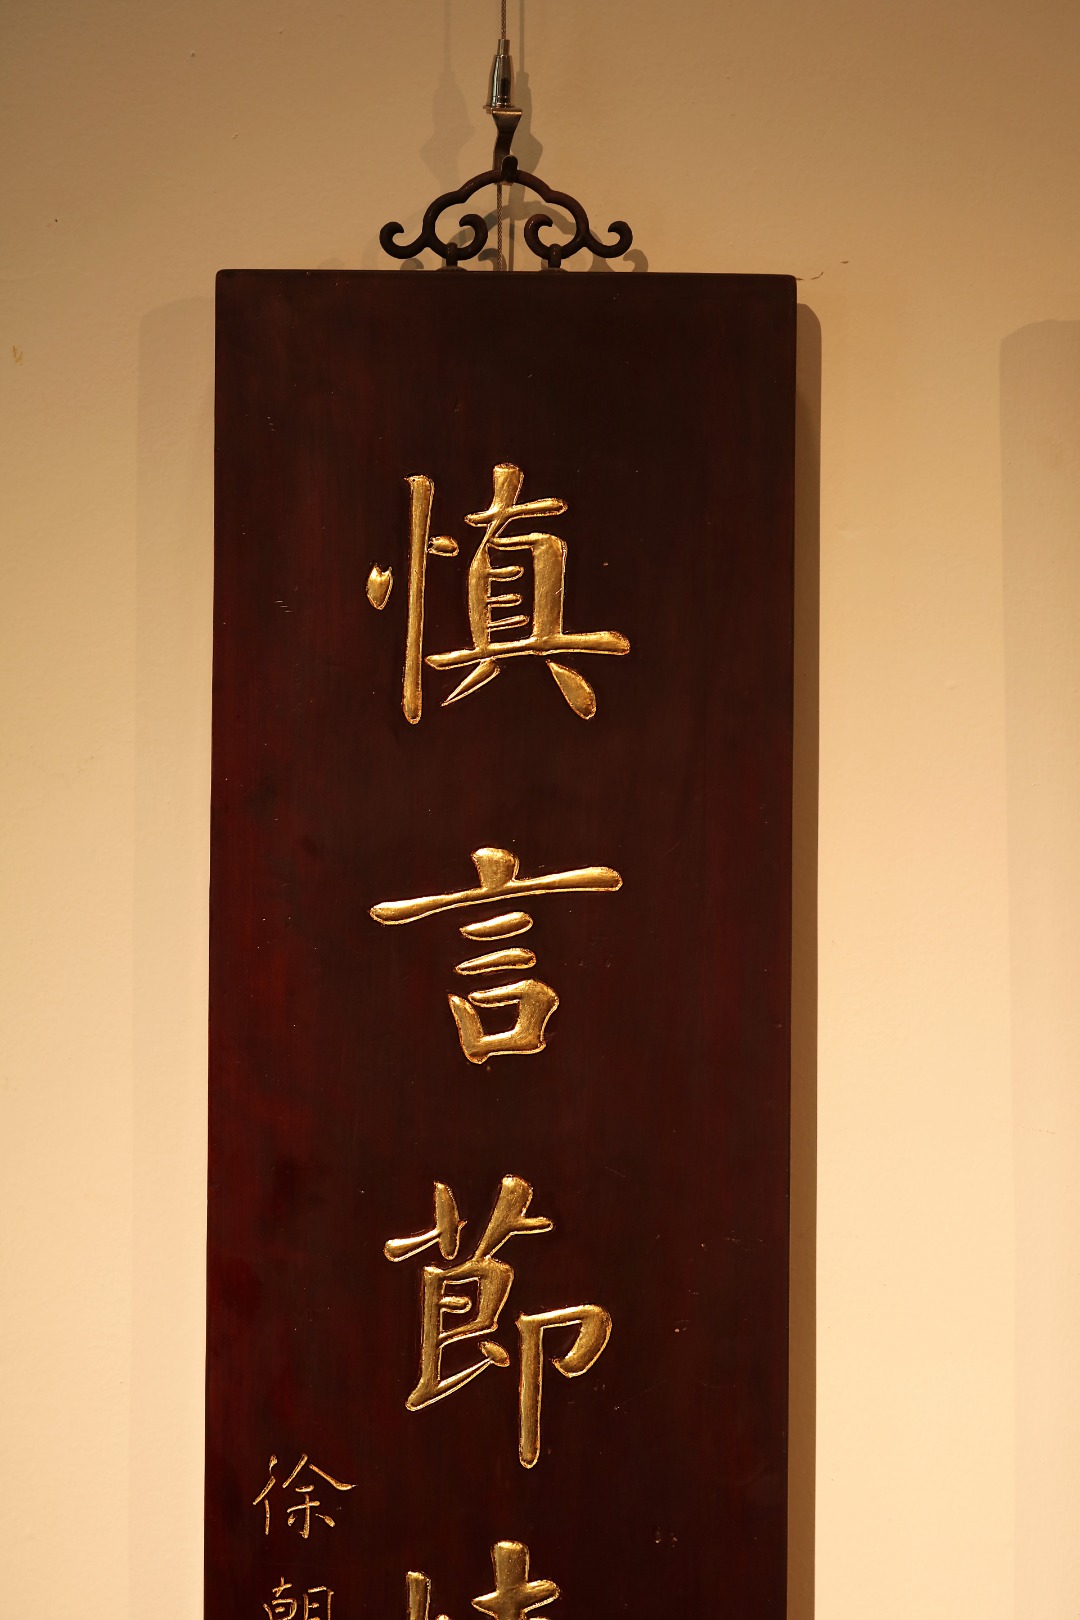 慎言節
徐朝